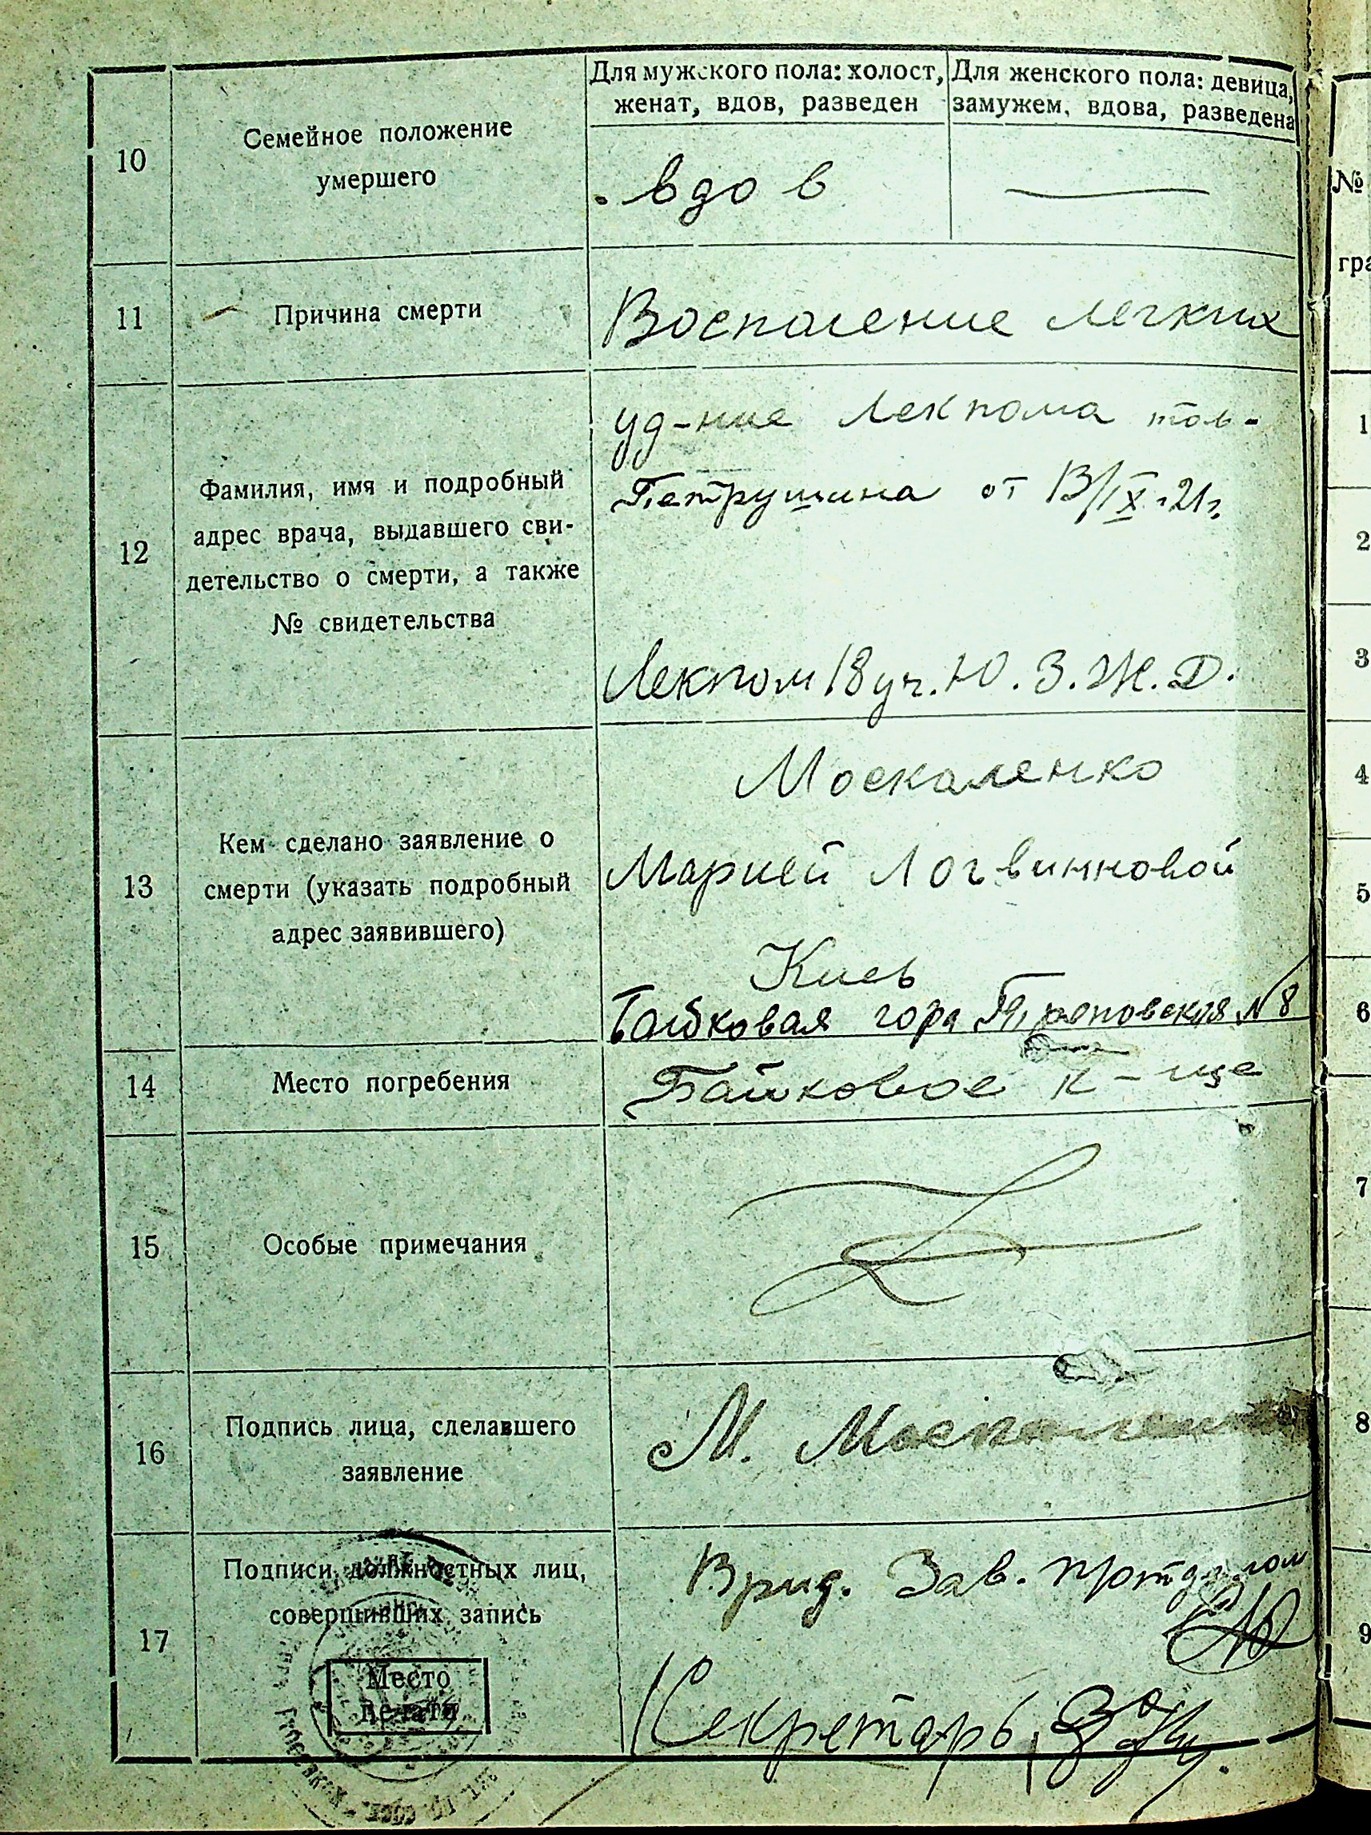 Для мужского пола: холост,
женат, вдов, разведен
Для женского пола: девица,
замужем, вдова, разведена
10
Семейное положение
умершего
вдов
11
Причина смерти
Воспаление легких
12
Фамилия, имя и подробный
адрес врача, выдавшего сви-
детельство о смерти, а также
№ свидетельства
уд-ние Лекпома
Петрушина от 13/IX-21г.
Лекпом 18 уч. Ю.З.Ж.Д.
13
Кем сделано заявление о
смерти (указать подробный
адрес заявившего)
Москаленко
Марией Логвинновой
Киев
Байковая гора №8
14
Место погребения
Байковое к-ще
15
Особые примечания
16
Подпись лица, сделавшего
заявление
М. Москаленко
17
Подписи должностных лиц,
совершивших запись
Место
печати
Врид. Зав.
Секретарь
№
гра
1
2
3
4
5
6
7
8
9